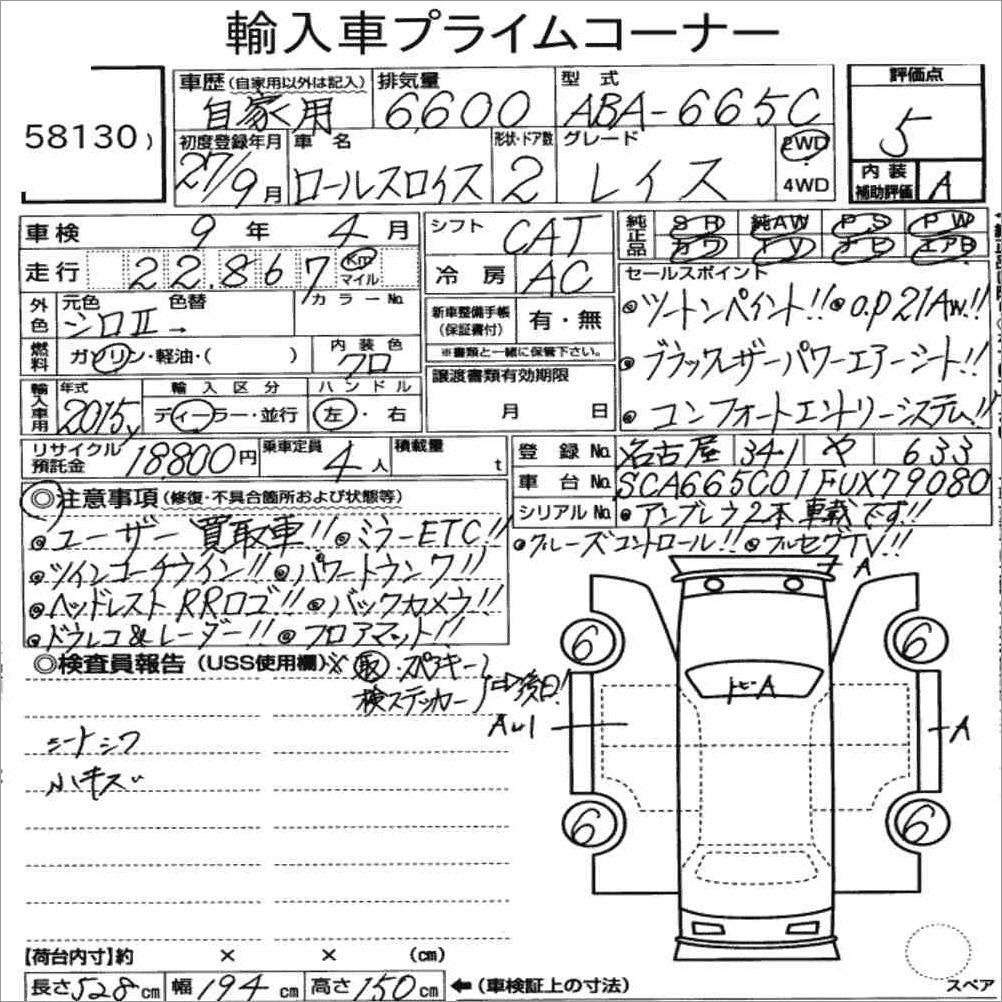 輸入車プライムコーナー
58130）
車歴（自家用以外は記入） 自家用
排気量 6,600
型式 ABA-665C
評価点 5
初度登録年月 27/9月
車名 ロールスロイス
形状・ドア数 2
グレード レイス
2WD・4WD
内装補助評価 A
車検 9年 4月
シフト CAT
純正品 SR 純AW PS PW
カワ TV ナビ エアB
走行 22,867 Km マイル
冷房 AC
セールスポイント
◎ツートンペイント!! ◎O.P21AW.!!
外色 元色 シロⅡ 色替 → カラーNo.
新車整備手帳（保証書付） 有・無
※書類と一緒に保管下さい。
◎ブラックスザーパワーエアーシート!!
燃料 ガソリン・軽油・（ ）
内装色 クロ
譲渡書類有効期限
月 日
◎コンフォートエントリーシステム!!
輸入車用 年式 2015y
輸入区分 ディーラー・並行
ハンドル 左・右
リサイクル預託金 18800円
乗車定員 4人
積載量 t
登録No. 名古屋 341 や 633
車台No. SCA665C01FUX79080
シリアルNo. ◎アンブレラ2本車載です!!
◎クルーズコントロール!! ◎フルセグTV!!
◎注意事項（修復・不具合箇所および状態等）
◎ユーザー買取車!! ◎ミラーETC!!
◎ツインコーチライン!! ◎パワートランク!!
◎ヘッドレストRRロゴ!! ◎バックカメラ!!
◎ドラレコ&レーダー!! ◎フロアマット!!
◎検査員報告（USS使用欄）※ 取・スペアキー
検ステッカー 後日!
シートシワ
小キズ
A
トビーA
AU1
A
6
6
6
6
【荷台内寸】約 × × （cm）
長さ528cm 幅194cm 高さ150cm ←（車検証上の寸法）
スペア